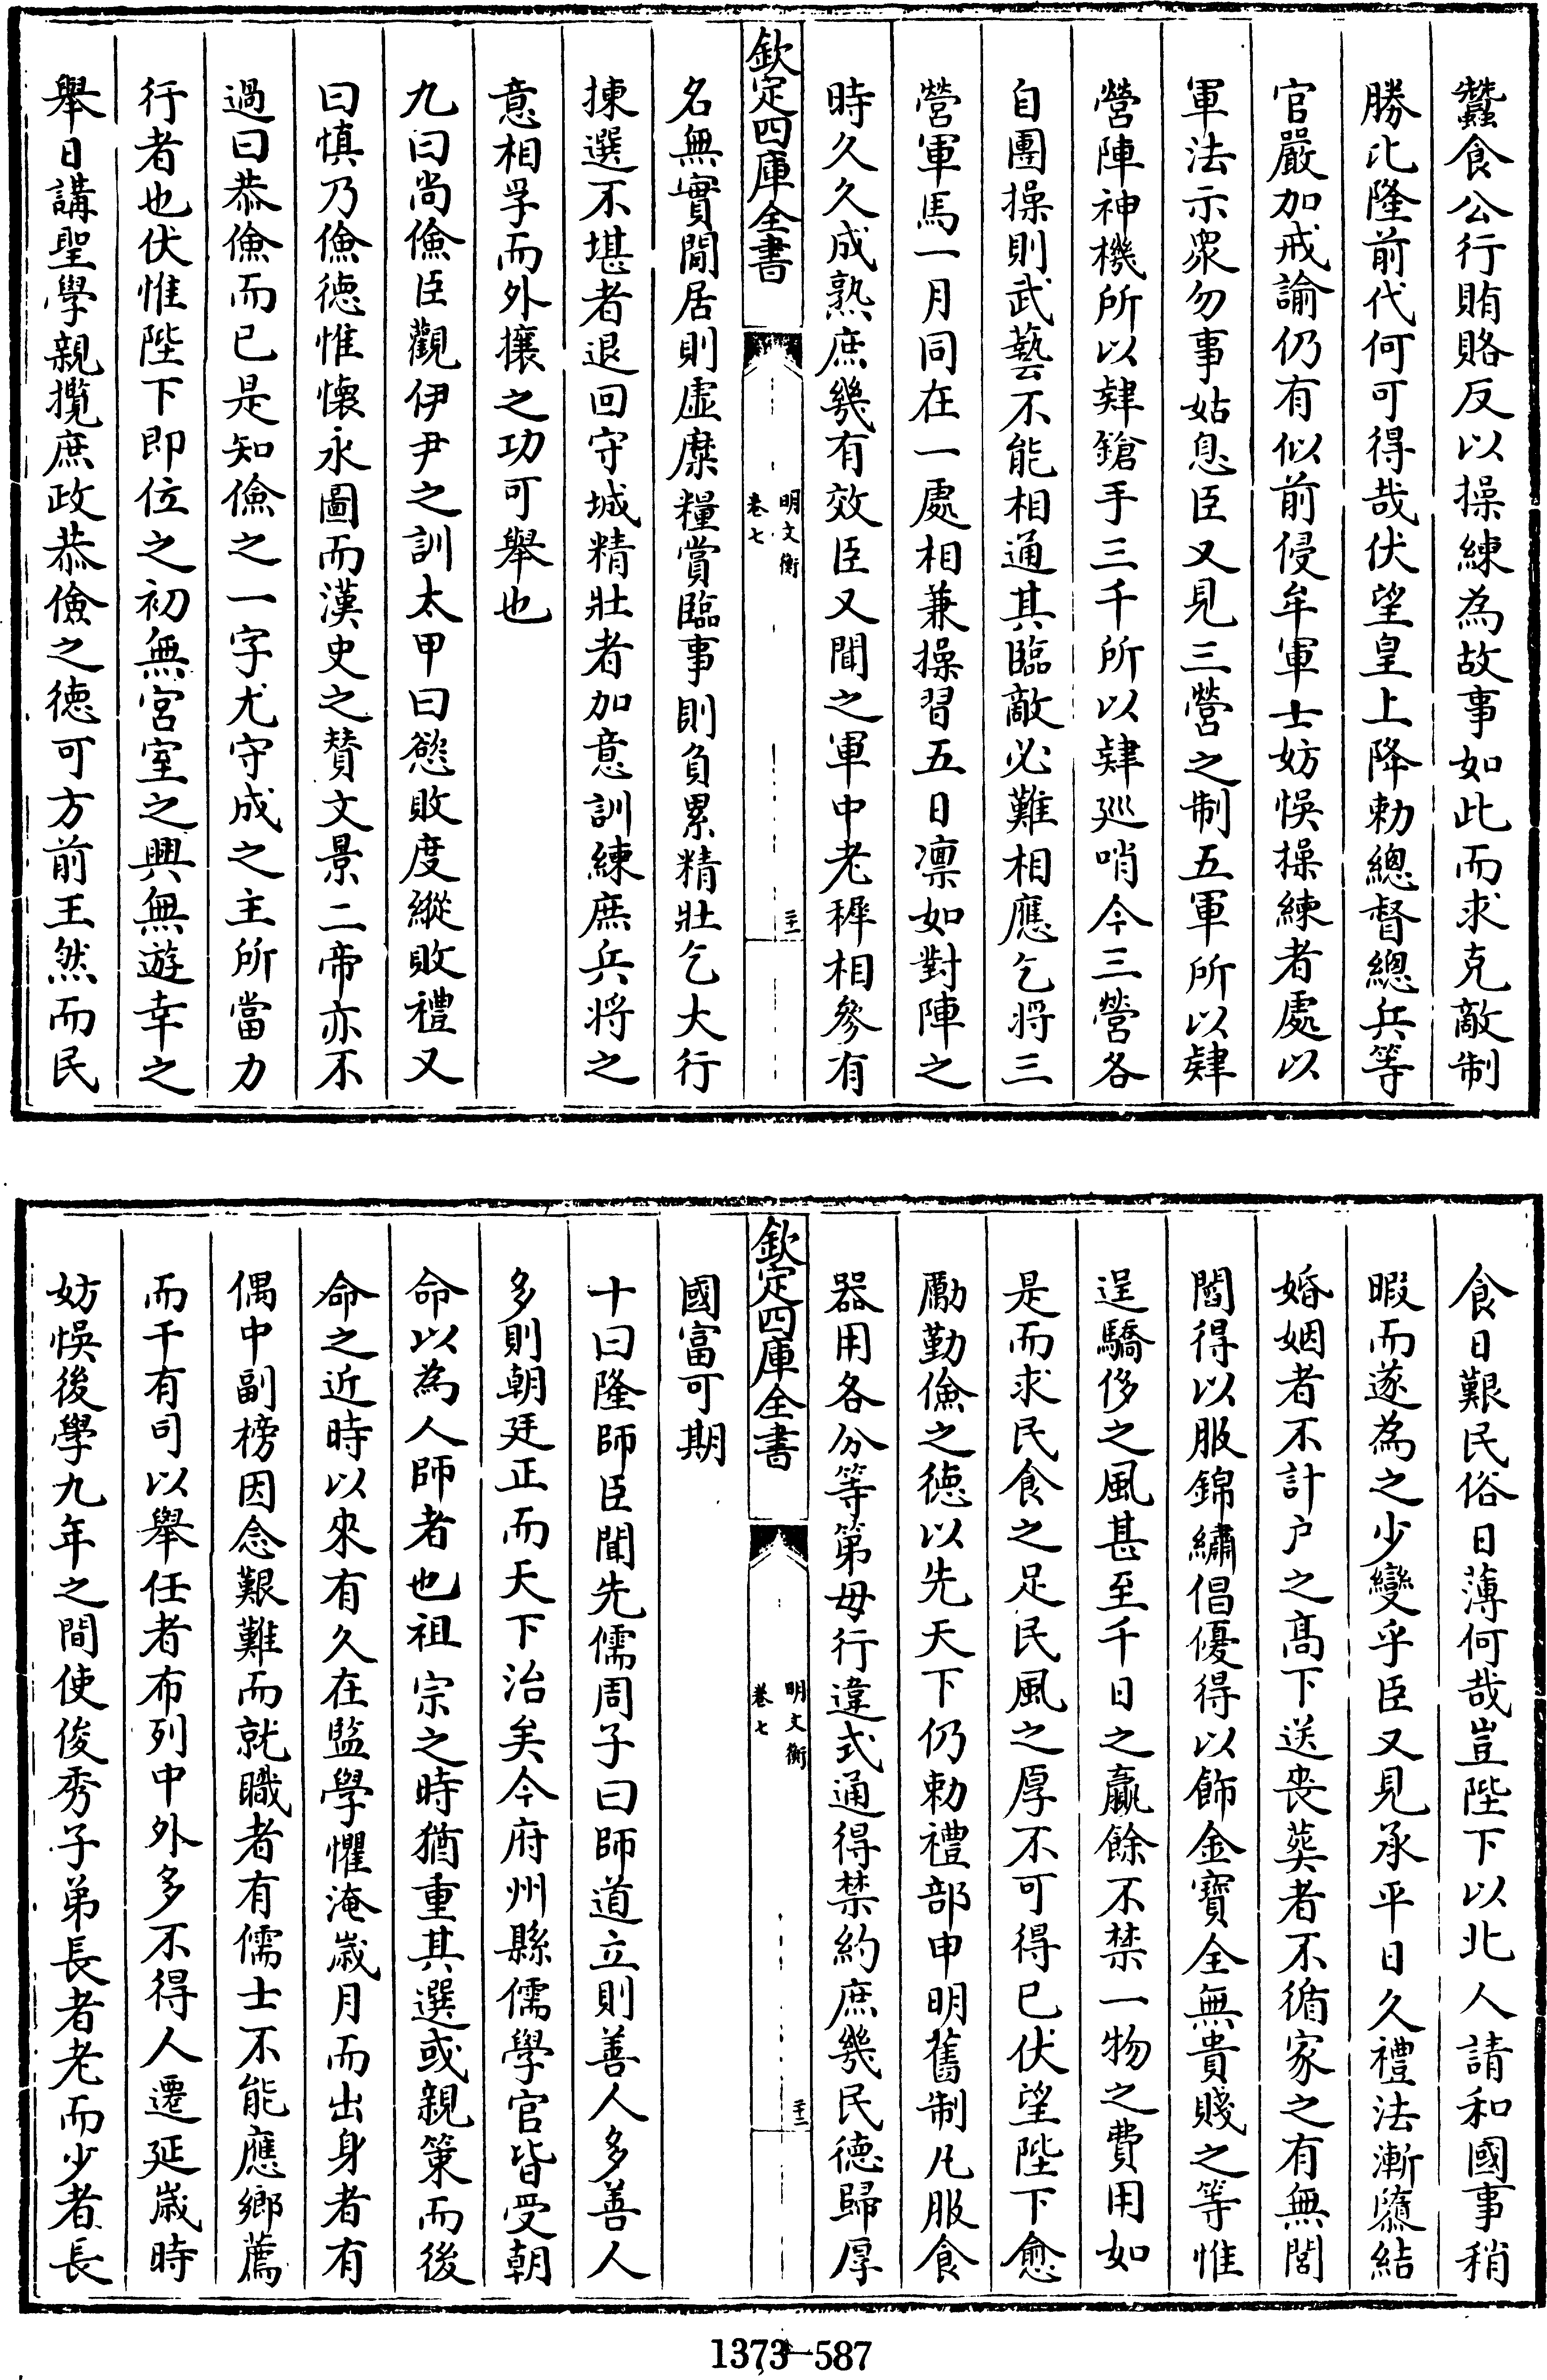 蠶食公行賄賂反以操練為故事如此而求克敵制
勝比隆前代何可得哉伏望皇上降勅總督總兵等
官嚴加戒諭仍有似前侵牟軍士妨悞操練者處以
軍法示衆勿事姑息臣又見三營之制五軍所以肄
營陣神機所以肄鎗手三千所以肄巡哨今三營各
自團操則武藝不能相通其臨敵必難相應乞將三
營軍馬一月同在一處相兼操習五日凛如對陣之
時久久成熟庶幾有效臣又聞之軍中老穉相參有
欽定四庫全書
明文衡
卷七
二十一
名無實閒居則虛糜糧賞臨事則負累精壯乞大行
揀選不堪者退回守城精壯者加意訓練庶兵將之
意相孚而外攘之功可舉也
九曰尚儉臣觀伊尹之訓太甲曰慾敗度縱敗禮又
曰慎乃儉德惟懷永圖而漢史之賛文景二帝亦不
過曰恭儉而已是知儉之一字尤守成之主所當力
行者也伏惟陛下即位之初無宮室之興無遊幸之
舉日講聖學親攬庶政恭儉之德可方前王然而民
食日艱民俗日薄何哉豈陛下以北人請和國事稍
暇而遂為之少變乎臣又見承平日久禮法漸隳結
婚姻者不計戸之髙下送喪葬者不循家之有無閭
閻得以服錦繡倡優得以飾金寶全無貴賤之等惟
逞驕侈之風甚至千日之贏餘不禁一物之費用如
是而求民食之足民風之厚不可得已伏望陛下愈
勵勤儉之德以先天下仍勅禮部申明舊制凡服食
器用各分等第毋行違式通得禁約庶幾民德歸厚
欽定四庫全書
明文衡
卷七
二十二
國富可期
十曰隆師臣聞先儒周子曰師道立則善人多善人
多則朝廷正而天下治矣今府州縣儒學官皆受朝
命以為人師者也祖宗之時猶重其選或親策而後
命之近時以來有久在監學懼淹歲月而出身者有
偶中副榜因念艱難而就職者有儒士不能應鄉薦
而干有司以舉任者布列中外多不得人遷延歲時
妨悞後學九年之間使俊秀子弟長者老而少者長
1373—587